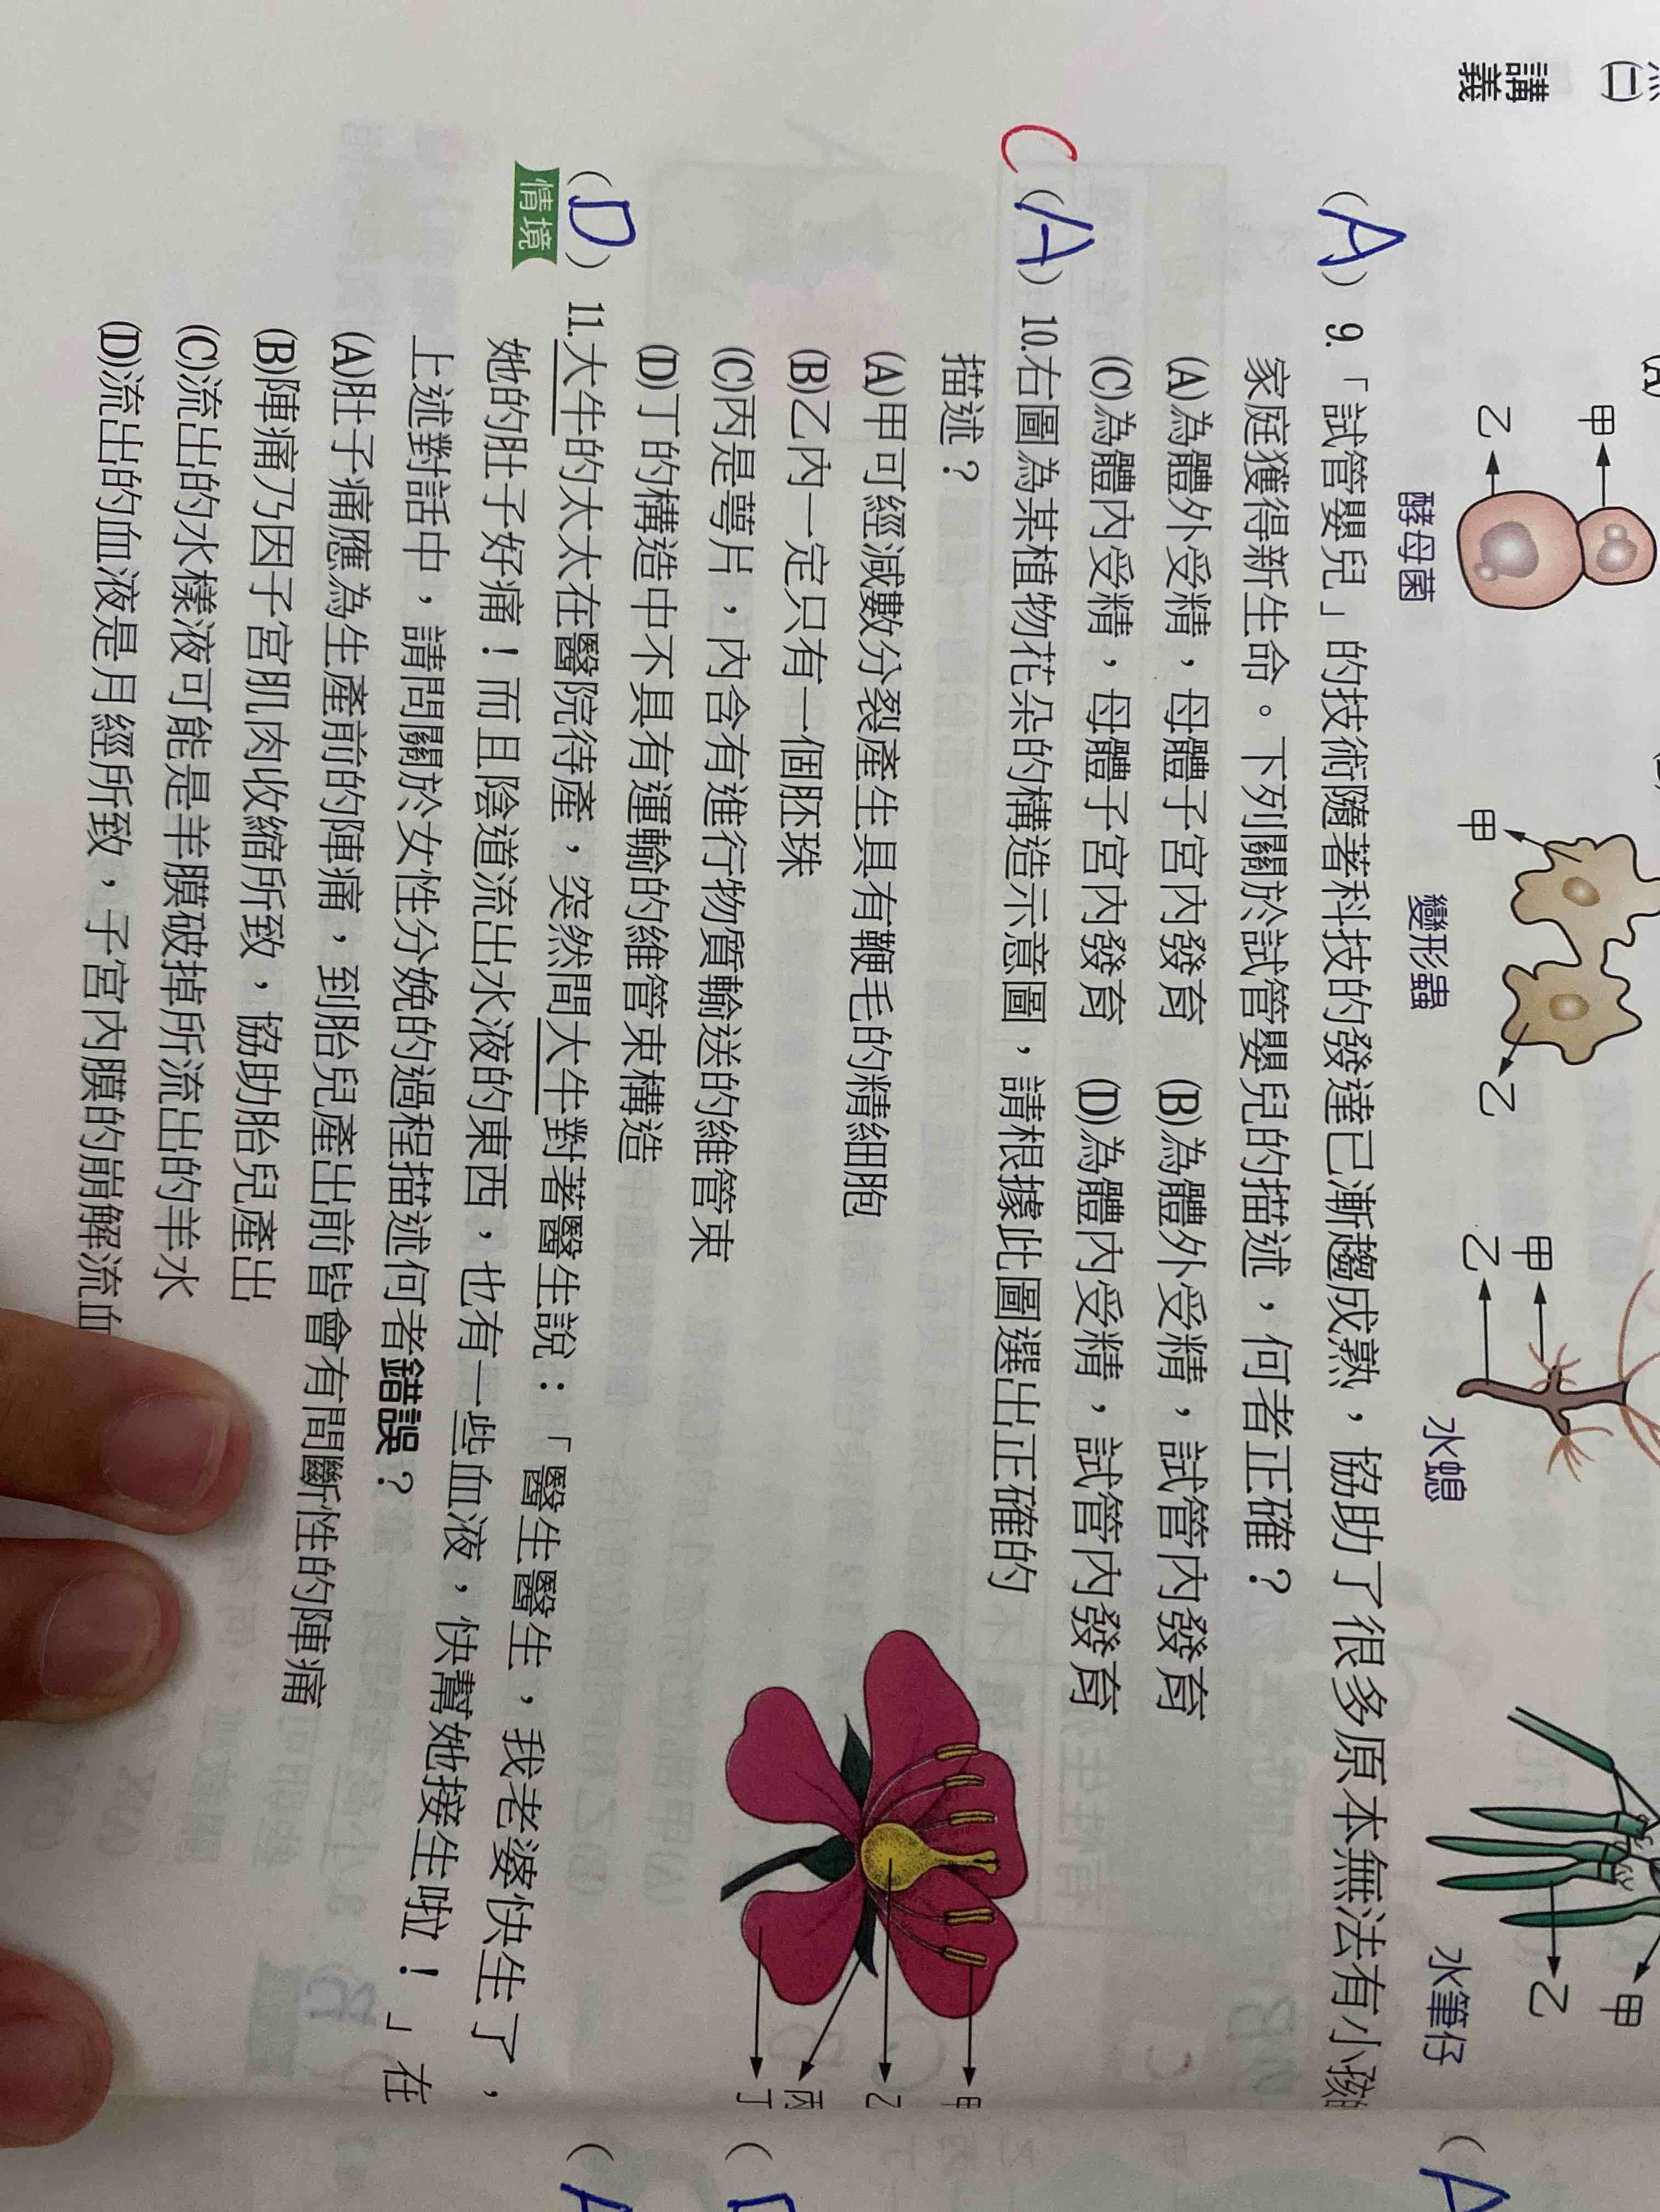 講義
甲
乙
酵母菌
甲
乙
變形蟲
甲
乙
水螅
甲
乙
水筆仔
(A) 9.「試管嬰兒」的技術隨著科技的發達已漸趨成熟，協助了很多原本無法有小孩
家庭獲得新生命。下列關於試管嬰兒的描述，何者正確？
(A)為體外受精，母體子宮內發育 (B)為體外受精，試管內發育
(C)為體內受精，母體子宮內發育 (D)為體內受精，試管內發育
C (A) 10.右圖為某植物花朵的構造示意圖，請根據此圖選出正確的
描述？
(A)甲可經減數分裂產生具有鞭毛的精細胞
(B)乙內一定只有一個胚珠
(C)丙是萼片，內含有進行物質輸送的維管束
(D)丁的構造中不具有運輸的維管束構造
甲
乙
丙
丁
(D) 11.大牛的太太在醫院待產，突然間大牛對著醫生說：「醫生醫生，我老婆快生了，
情境
她的肚子好痛！而且陰道流出水液的東西，也有一些血液，快幫她接生啦！」在
上述對話中，請問關於女性分娩的過程描述何者錯誤？
(A)肚子痛應為生產前的陣痛，到胎兒產出前皆會有間斷性的陣痛
(B)陣痛乃因子宮肌肉收縮所致，協助胎兒產出
(C)流出的水樣液可能是羊膜破掉所流出的羊水
(D)流出的血液是月經所致，子宮內膜的崩解流血